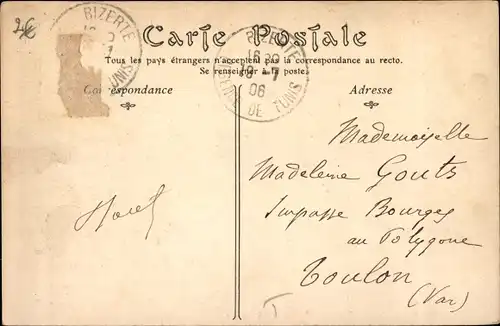 2€
BIZERTE
Carte Postale
BIZERTE
16 30
10 - 7
06
DE TUNIS
TUNIS
Tous les pays étrangers n'acceptent pas la correspondance au recto.
Se renseigner à la poste.
Correspondance
Adresse
Mademoiselle
Madeleine Gouts
Impasse Bourgey
au Polygone
Toulon
(Var)